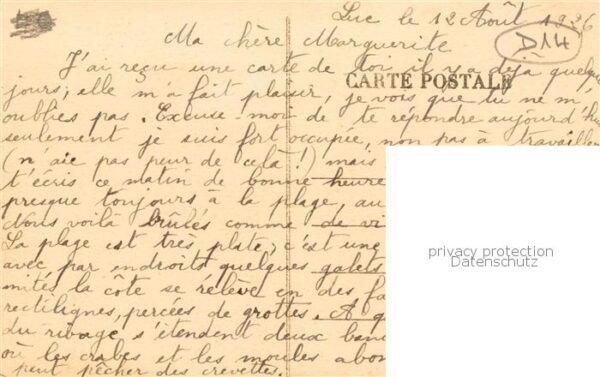 Luc le 12 Août 1926
D14
Ma chère Marguerite
J'ai reçu une carte de toi il y a déjà quelque
CARTE POSTALE
jours; elle m'a fait plaisir, je vois que tu ne m'
oublies pas. Excuse-moi de te répondre aujourd'hui
seulement je suis fort occupée, non pas à travailler
(n'aie pas peur de celà!) mais
t'écris ce matin de bonne heure
presque toujours à la plage, au
Nous voilà brûlés comme de vi
La plage est très plate, c'est une
avec par endroits quelques galets
mités la côte se relève en des fa
rectilignes, percées de grottes. A q
du rivage s'étendent deux banc
où les crabes et les moules abon
peut pêcher des crevettes.
privacy protection
Datenschutz